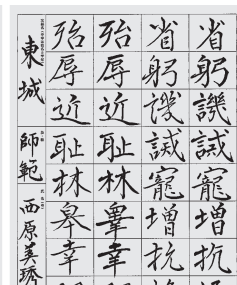 省躬譏誡寵增抗
省躬譏誡寵增抗
殆辱近耻林皐幸
殆辱近耻林皋幸
東城
師範
西原美